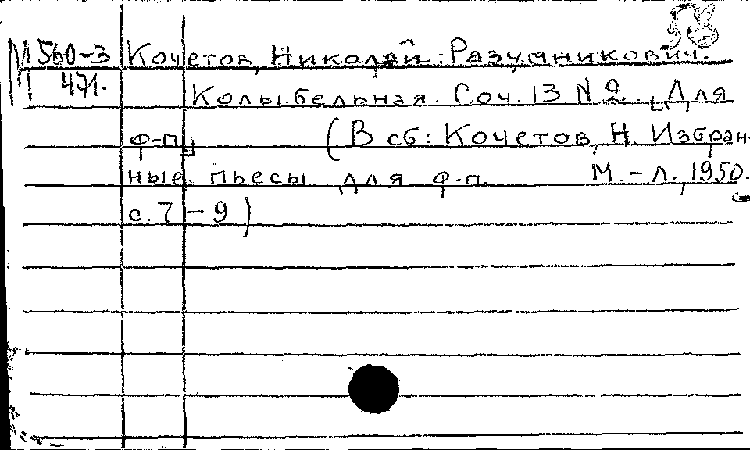 М 560-3 Кочетов, Николай Разумникович.
471. Колыбельная. Соч. 13 № 2. [Для
ф-п.] (В сб: Кочетов, Н. Избран-
ные пьесы для ф-п. М.-Л., 1950.
с. 7-9)